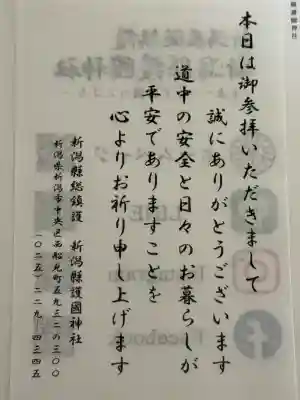 本日は御参拝いただきまして
誠にありがとうございます
道中の安全と日々のお暮らしが
平安でありますことを
心よりお祈り申し上げます
新潟縣総鎮護 新潟縣護國神社
新潟県新潟市中央区西船見町五九三二の三〇〇
(〇二五)二二九 四三四五